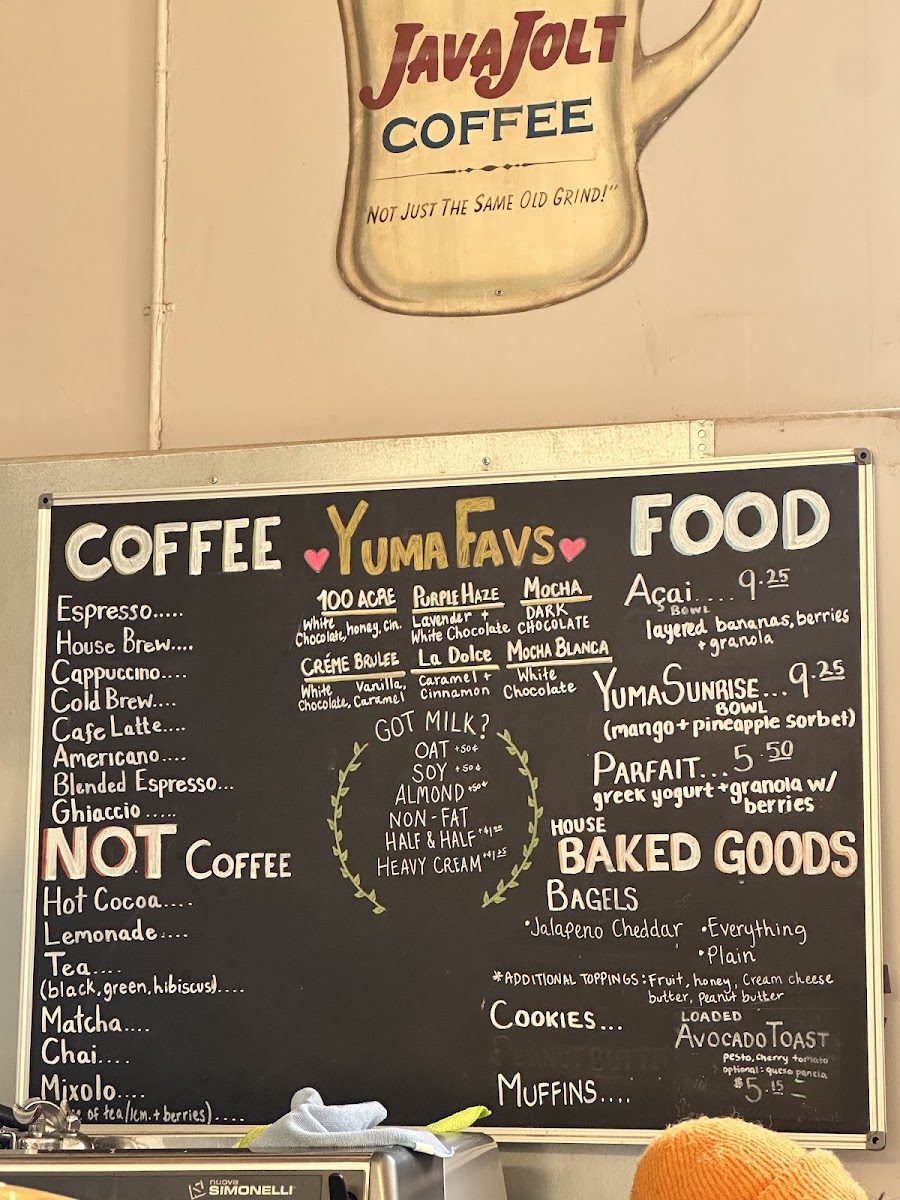 JAVAJOLT
COFFEE
"NOT JUST THE SAME OLD GRIND!"
COFFEE
Espresso.....
House Brew....
Cappuccino....
Cold Brew....
Cafe Latte....
Americano....
Blended Espresso...
Ghiaccio .....
NOT COFFEE
Hot Cocoa....
Lemonade....
Tea....
(black, green, hibiscus)....
Matcha....
Chai....
Mixolo....
of tea/lem. + berries)....
YUMA FAVS
100 ACRE
White
Chocolate, honey, cin.
PURPLE HAZE
Lavender +
White Chocolate
MOCHA
DARK
CHOCOLATE
CRÉME BRULEE
White Vanilla,
Chocolate, Caramel
LA DOLCE
Caramel +
Cinnamon
MOCHA BLANCA
White
Chocolate
GOT MILK?
OAT +50¢
SOY +50¢
ALMOND +50¢
NON-FAT
HALF & HALF
HEAVY CREAM +$1.25
FOOD
Açai.....9.25
BOWL
layered bananas, berries
+ granola
YUMA SUNRISE...9.25
BOWL
(mango + pineapple sorbet)
PARFAIT...5.50
greek yogurt + granola w/
berries
HOUSE
BAKED GOODS
BAGELS
•Jalapeno Cheddar •Everything
•Plain
*ADDITIONAL TOPPINGS: Fruit, honey, Cream cheese
butter, Peanut butter
COOKIES...
MUFFINS....
LOADED
AVOCADO TOAST
pesto, cherry tomato
optional: queso panela
$5.15
nuova
SIMONELLI